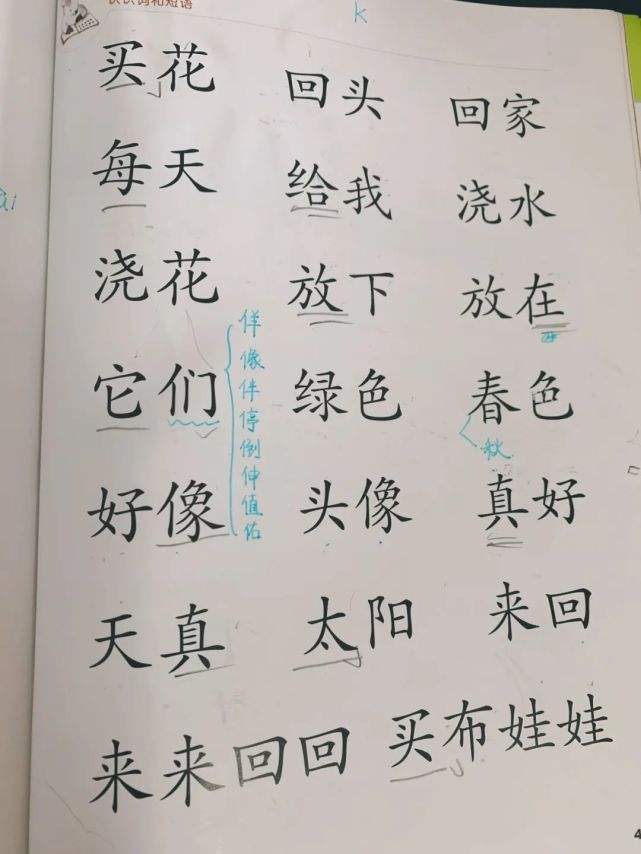 认识词和短语
k
买花 回头 回家
每天 给我 浇水
浇花 放下 放在
它们 绿色 春色
秋
好像 头像 真好
样
像
伴
停
倒
伸
值
佑
天真 太阳 来回
来来回回 买布娃娃
4